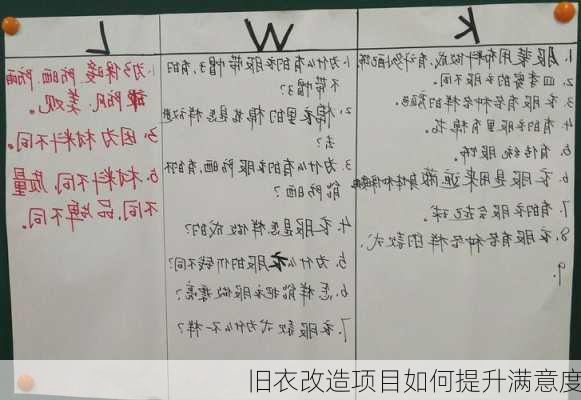 K
1. 服装用布料做成,有
2. 四季穿的衣服不同。
3. 衣服有各种各样的颜色。
4. 有的衣服里有棉花。
5. 有传统服饰。
6. 衣服是用来遮蔽身体和保暖的
7. 有的衣服会起球。
8. 衣服有各种各样的款式.
9.
W
1. 为什么有的衣服带帽子,有的
不带帽子?
2. 棉衣里的棉花是怎样放进
去?
3. 为什么有的衣服防晒,有的不
能防晒?
4. 衣服是怎样做成的?
5. 为什么衣服的价钱不同?
6. 怎样能把衣服做漂亮?
7. 衣服款式为什么不一样?
L
1. 为了保暖 防晒 防雨
防风、美观。
3. 因为材料不同。
5. 材料不同,质量
不同,品牌不同。
旧衣改造项目如何提升满意度